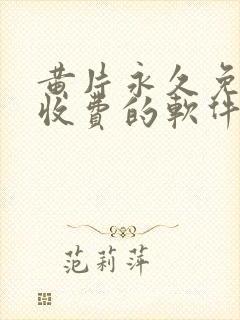 黄片永久免
收费的軟件
范莉萍